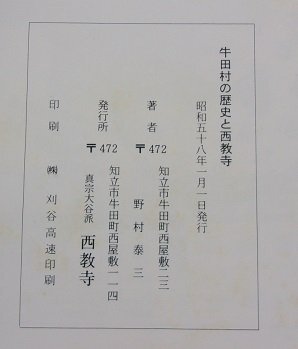 牛田村の歴史と西教寺
昭和五十八年一月一日発行
著者 〒472 知立市牛田町西屋敷二三
野村泰三
発行所 〒472 知立市牛田町西屋敷一一四
真宗大谷派 西教寺
印刷 ㈱刈谷高速印刷